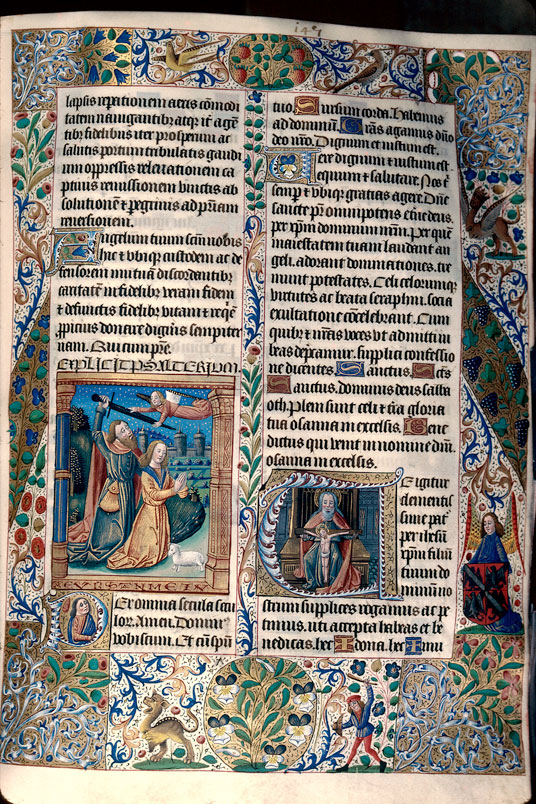 147
lapsis repationem actus cõmodi
tatem nauigantibꝫ atqꝫ it̃ agẽ
tibꝫ fidelibus iter prosperum ac
salutis portum tribulatis gaudi
um oppressis releuationem ca
ptiuis remissionem vinctis ab
solutionẽ ⁊ pegrinis ad pr̃iam
reuersionem.
Angelum tuum sc̃m nobis
hic ⁊ vbiqꝫ custodem ac de
fensorem mutuã discordentibꝫ
caritatẽ infidelibꝫ veram fidem
⁊ defunctis fidelibꝫ vitam ⁊ reqẽ
ppicius donare digñs sempiter
nam. Qui cum pr̃e.
EXPLICIT PSALTERIVM
Per omnia secula secu
lor. Amen. Domiñ
vobiscum. Et cũ spũ
tuo. Sursum corda. Habemus
ad dominum. Gr̃as agamus dño
deo nr̃o. Dignum et iustum est.
Vere dignum et iustum est
equum ⁊ salutare. Nos t̃
semp̃ ⁊ vbiqꝫ gratias agere. Dñe
sancte pr̃ omnipotens et̃ne deus.
per xp̃m dominum nr̃m. Per quẽ
maiestatem tuam laudant an
geli. adorant dominationes. tre
munt potestates. Celi celorumqꝫ
virtutes ac beata seraphin. socia
exultatione cõcelebrant. Cum
quibꝫ ⁊ nr̃as voces vt admitti iu
beas depramur. supplici confessio
ne dicentes. Sanctus. Sc̃s.
Sanctus. dominus deus saba
oth. Pleni sunt celi ⁊ t̃ra gloria
tua osanna in excelsis. Bene
dictus qui venit in nomine dñi.
osanna in excelsis.
Te igitur
clementis
sime pat̃
per ihesũ
xp̃m filiũ
tuum do
minũ no
strum supplices rogamus ac pe
timus. uti accepta habeas et be
nedicas. hec dona. hec mu